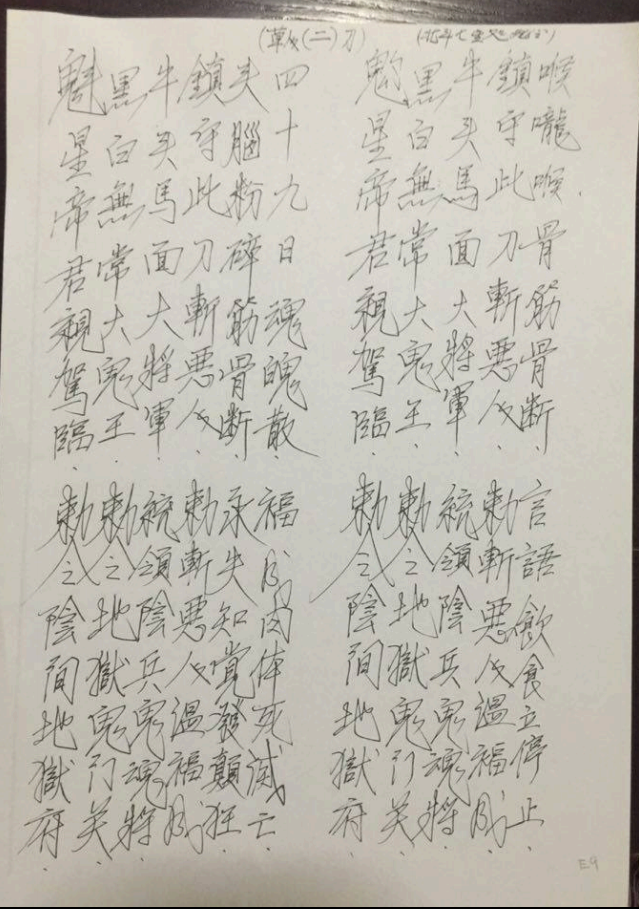 (二)刀)
魁星帝君親駕臨.勅令陰間地獄府.
黑白無常大鬼王.勅令之地獄鬼門关.
牛头馬面大將軍.統領陰兵鬼魂將.
鎮守此刀斬惡人.勅斬惡人温福成.
头腦粉碎筋骨断.永失知覺發顛狂.
四十九日魂魄散.福成肉体死滅亡.
魁星帝君親駕臨.勅令陰間地獄府.
黑白無常大鬼王.勅令之地獄鬼門关.
牛头馬面大將軍.統領陰兵鬼魂將.
鎮守此刀斬惡人.勅斬惡人温福成.
喉嚨喉骨筋骨断.言語飲食立停止.
E9